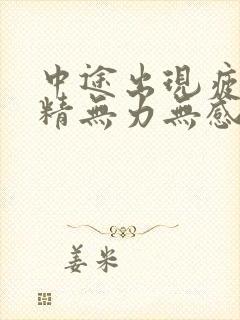 中途出現疲
精無力無感
姜米